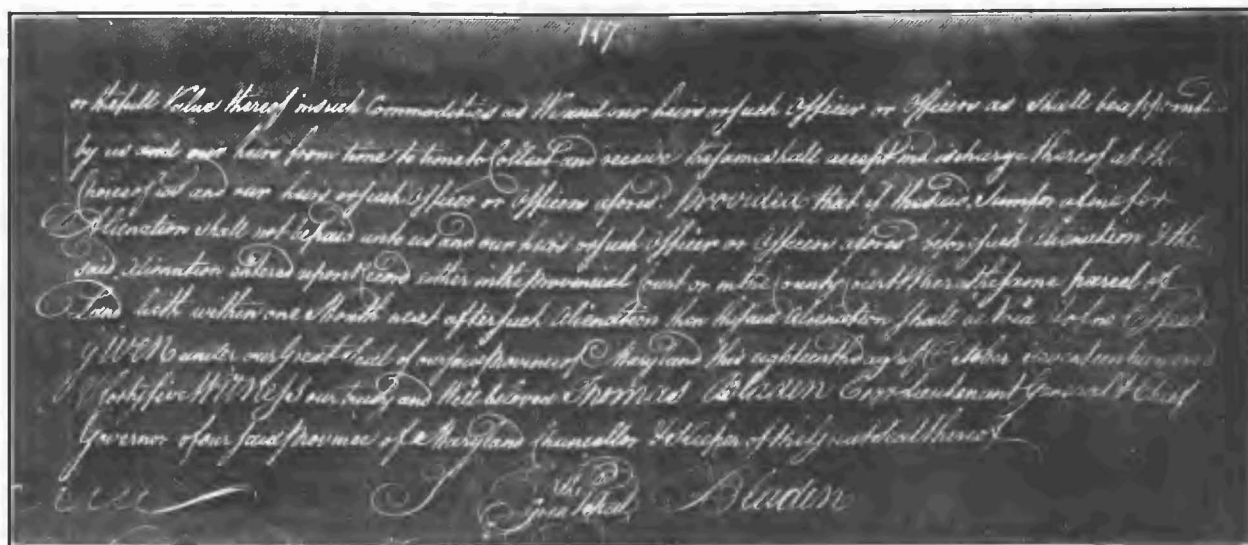 117
or the full Value thereof in such Commodities as We and our heirs or such Officer or Officers as shall be appointed
by us and our heirs from time to time to Collect and receive the same shall accept in discharge thereof at the
Choice of us and our heirs or such Officer or Officers afores.d Provided that if the said Sum for a fine for
Alienation shall not be paid unto us and our heirs or such Officer or Officers afores.d before such Alienation & the
said Alienation entered upon Record either in the Provincial Court or in the County Court Where the same parcel of
Land lieth within one Month next after such Alienation then the said Alienation shall be Void & of no Effect
GIVEN under our Great Seal of our said Province of Maryland this eighteenth day of October seventeen hundred
& forty five WITNESS our trusty and Well beloved Thomas Bladen Esq.r Lieutenant General & Chief
Governor of our said Province of Maryland Chancellor & Keeper of the Great Seal thereof
The Great Seal Bladen